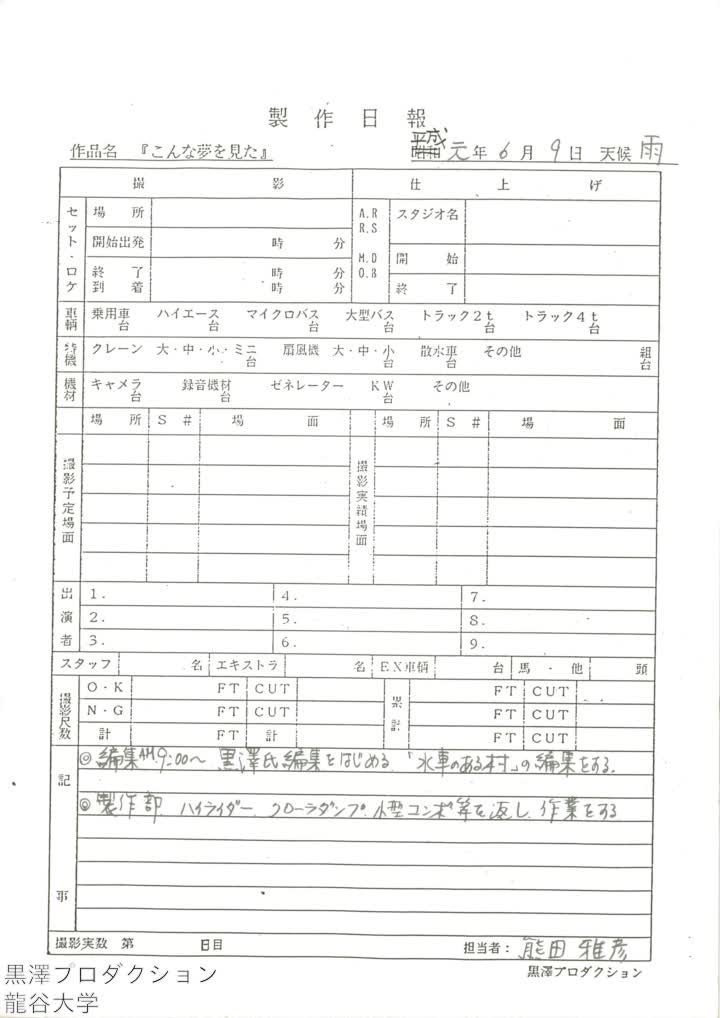 製作日報
作品名 『こんな夢を見た』 平成元年6月9日 天候 雨
撮影 仕上げ
セット・ロケ 場所 A.R R.S スタジオ名
開始出発 時 分
終了 時 分 M.D O.B 開始
到着 時 分 終了
車輌 乗用車 台 ハイエース 台 マイクロバス 台 大型バス 台 トラック2t 台 トラック4t 台
特機 クレーン 大・中・小・ミニ 台 扇風機 大・中・小 台 散水車 台 その他 組 台
機材 キャメラ 台 録音機材 台 ゼネレーター KW 台 その他
撮影予定場面 場所 S # 場面 撮影実績場面 場所 S # 場面
出演者 1. 4. 7.
2. 5. 8.
3. 6. 9.
スタッフ 名 エキストラ 名 EX車輌 台 馬・他 頭
撮影尺数 O・K FT CUT 累計 FT CUT
N・G FT CUT FT CUT
計 FT 計 FT CUT
記事
◎編集AM.9:00〜 黒澤氏編集をはじめる 「水車のある村」の編集をする.
◎製作部 ハイライダー. クローラダンプ. 小型コンボ等を返し. 作業をする
撮影実数 第 日目 担当者: 熊田雅彦
黒澤プロダクション
黒澤プロダクション
龍谷大学